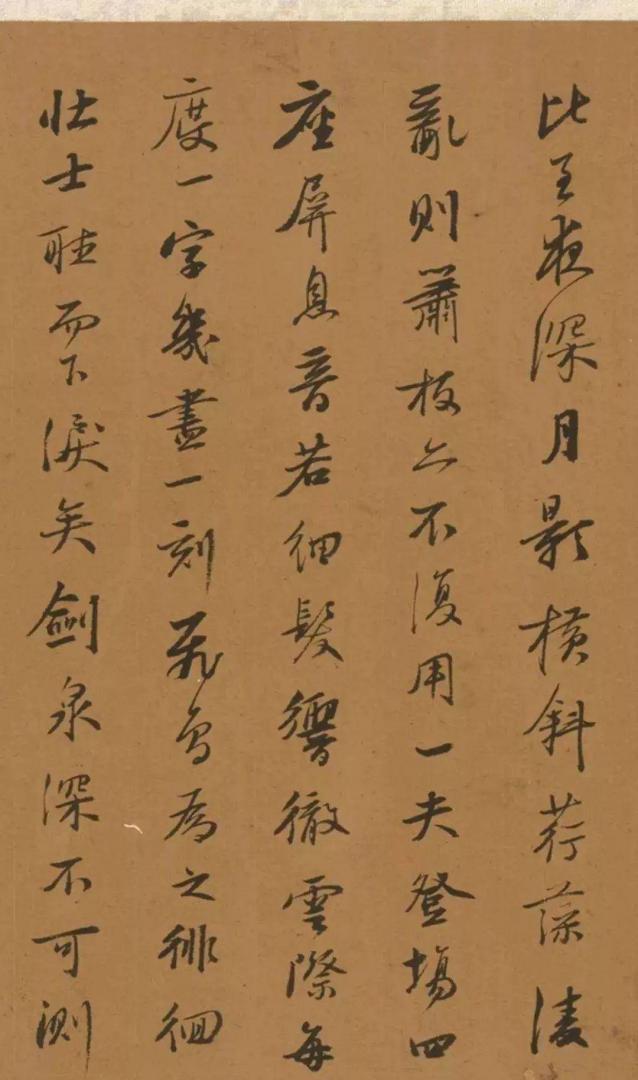 比至夜深月影横斜荇藻凌
亂則蕭板亦不復用一夫登場四
座屏息音若細髮響徹雲際每
度一字幾盡一刻飛鳥為之徘徊
壯士聽而下淚矣劍泉深不可測